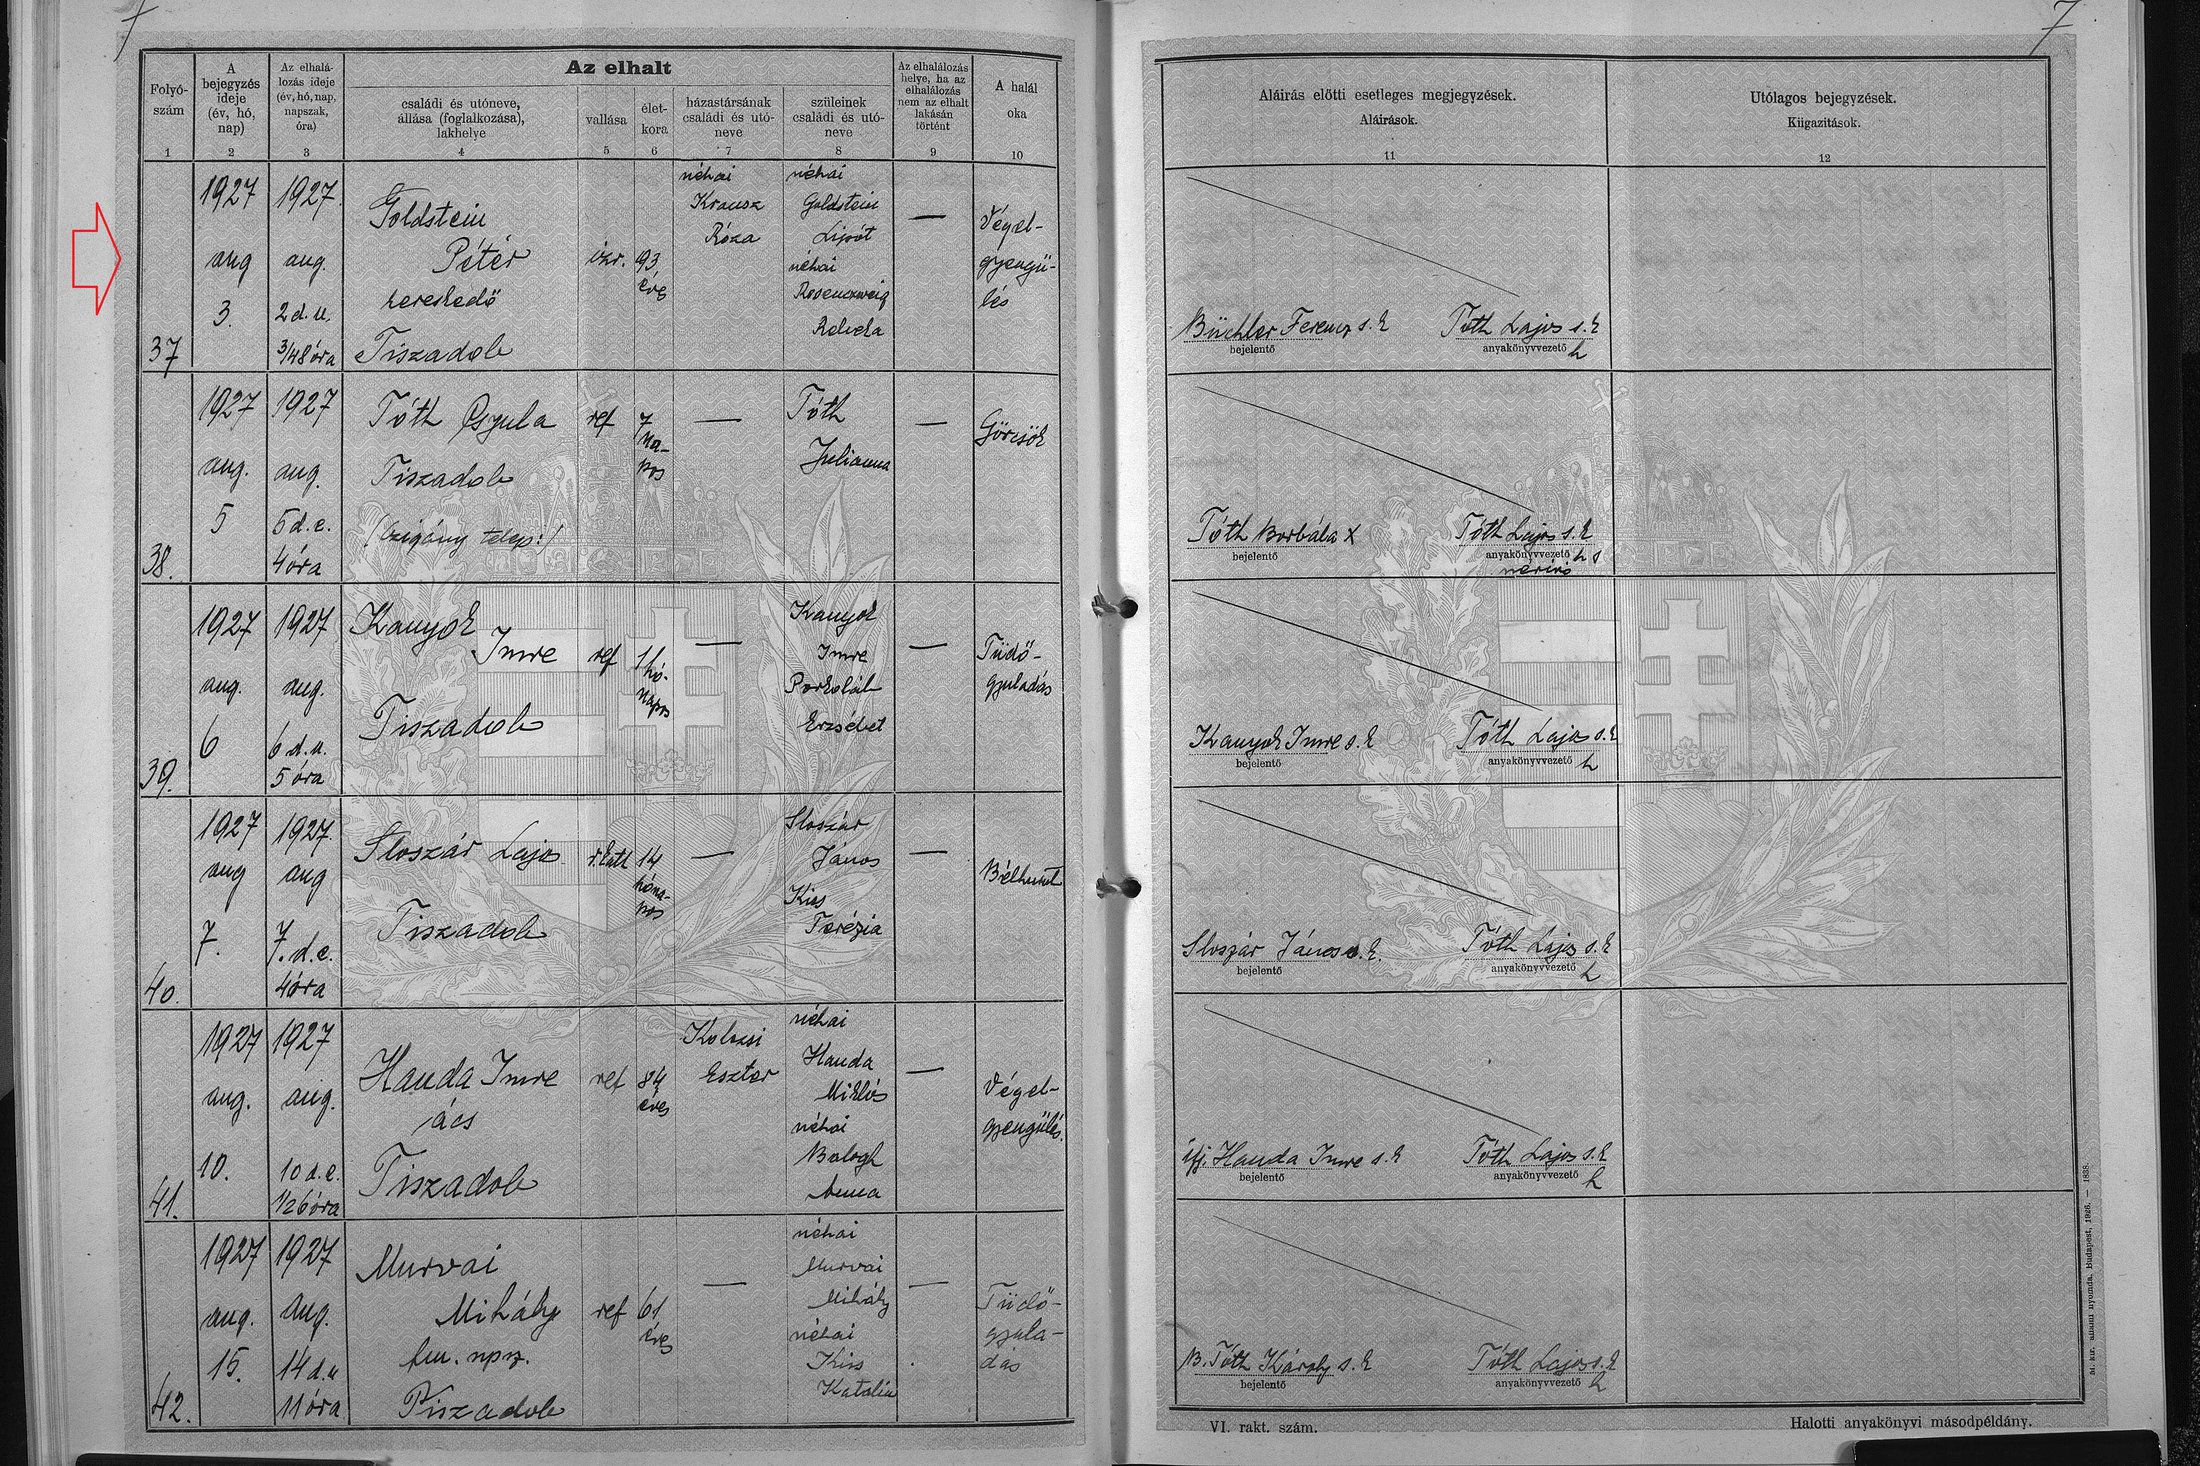 7
Az elhalt
Folyó-
szám
A
bejegyzés
ideje
(év, hó,
nap)
Az elhalá-
lozás ideje
(év, hó, nap,
napszak,
óra)
családi és utóneve,
állása (foglalkozása),
lakhelye
vallása
élet-
kora
házastársának
családi és utó-
neve
szüleinek
családi és utó-
neve
Az elhalálozás
helye, ha az
elhalálozás
nem az elhalt
lakásán
történt
A halál
oka
1
2
3
4
5
6
7
8
9
10
37
1927
aug
3.
1927.
aug.
2 d. u.
3/4 8 óra
Goldstein
Péter
kereskedő
Tiszadob
izr.
93
éve
néhai
Krausz
Róza
néhai
Goldstein
Lipót
néhai
Rosenzweig
Rebeka
—
Végel-
gyengü-
lés
38.
1927
aug.
5
1927
aug.
5 d. e.
4 óra
Tóth Gyula
Tiszadob
(Czigány telep:)
ref
7
na-
pos
—
Tóth
Julianna
—
Görcsök
39.
1927
aug.
6
1927
aug.
6 d. u.
5 óra
Kanyok
Imre
Tiszadob
ref
1 hó-
napos
—
Kanyok
Imre
Porkoláb
Erzsébet
—
Tüdő-
gyuladás
40.
1927
aug
7.
1927.
aug
7. d. e.
4 óra
Sloszár Lajos
Tiszadob
r. kath
14
hóna-
pos
—
Sloszár
János
Kiss
Terézia
—
Bélhurut
41.
1927
aug.
10.
1927
aug.
10 d. e.
1/2 6 óra
Handa Imre
ács
Tiszadob
ref
84
éves
Kolozsi
Eszter
néhai
Handa
Miklós
néhai
Balogh
Anna
—
Végel-
gyengülés.
42.
1927
aug.
15.
1927
aug.
14 d. u
11 óra
Murvai
Mihály
Tiszadob
ref
61
éves
—
néhai
Murvai
Mihály
néhai
Kiss
Katalin
—
Tüdő-
gyula-
dás
7
Aláírás előtti esetleges megjegyzések.
Aláírások.
11
Utólagos bejegyzések.
Kiigazítások.
12
Büchler Ferenc s. k Tóth Lajos s. k
bejelentő anyakönyvvezető h
Tóth Borbála x Tóth Lajos s. k
bejelentő anyakönyvvezető h s
névíró
Kanyok Imre s. k Tóth Lajos s. k
bejelentő anyakönyvvezető h
Sloszár János s. k. Tóth Lajos s. k
bejelentő anyakönyvvezető h
ifj. Handa Imre s. k Tóth Lajos s. k
bejelentő anyakönyvvezető h
B. Tóth Károly s. k Tóth Lajos s. k
bejelentő anyakönyvvezető h
VI. rakt. szám.
Halotti anyakönyvi másodpéldány.
M. kir. állami nyomda. Budapest, 1926. — 1888.